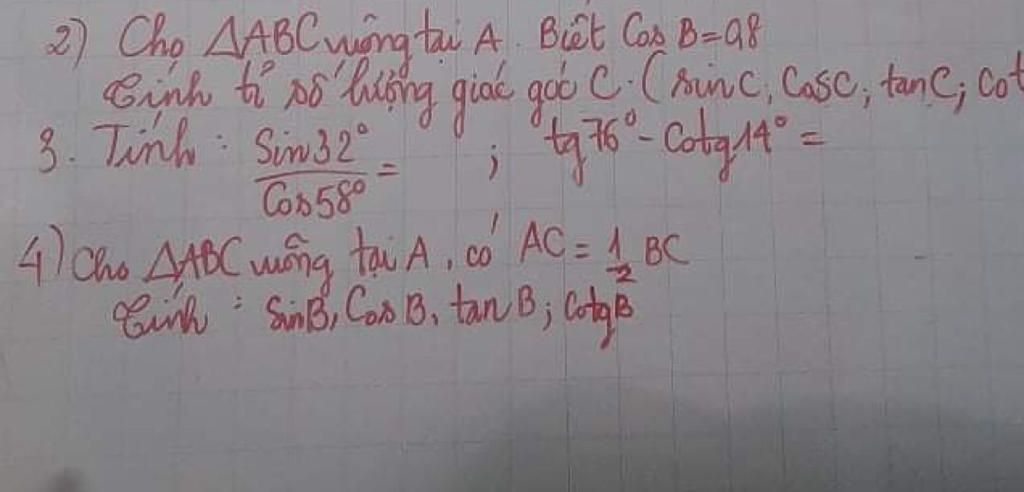 2) Cho ΔABC vuông tại A. Biết Cos B = 0,8
Tính tỉ số lượng giác góc C. (sin C, Cos C; tan C; Cot
3. Tính: Sin32°/Cos58° = ; tg76° - Cotg14° =
4) Cho ΔABC vuông tại A, có AC = 1/2 BC
Tính: SinB, Cos B, tan B; CotgB